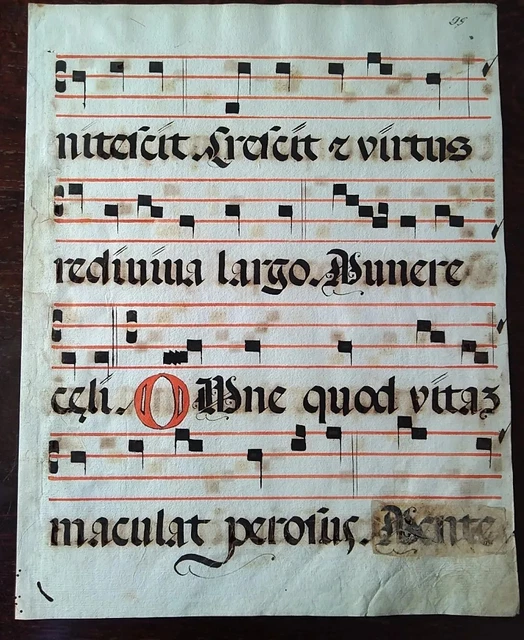 99
niteſcit. Creſcit ⁊ virtus
rediuiua largo. Munere
cęli. OMne quod vitaꝫ
maculat peroſus. Mente